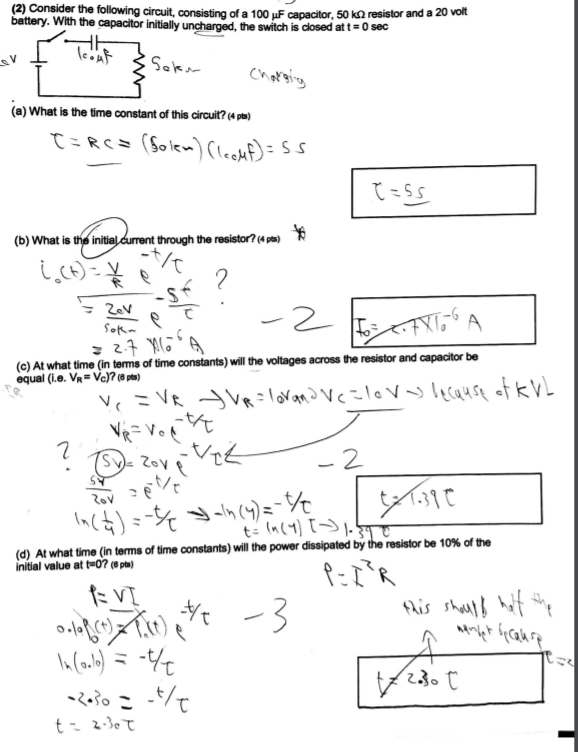 (2) Consider the following circuit, consisting of a 100 μF capacitor, 50 kΩ resistor and a 20 volt
battery. With the capacitor initially uncharged, the switch is closed at t = 0 sec
100μF
50kΩ
Charging
(a) What is the time constant of this circuit? (4 pts)
τ = RC = (50kΩ)(100μF) = 5 s
τ = 5s
(b) What is the initial current through the resistor? (4 pts)
i₀(t) = V/R e^-t/τ ?
= 20V/50kΩ e
= 2.7 x10⁻⁶ A
-2
I₀ = 2.7X10⁻⁶ A
(c) At what time (in terms of time constants) will the voltages across the resistor and capacitor be
equal (i.e. VR = VC)? (6 pts)
Vc = VR → VR = 10V and Vc = 10V → because of KVL
VR = V₀e^-t/τ
? 5V = 20V e^-t/τ
-2
5V/20V = e^-t/τ
ln(1/4) = -t/τ → -ln(4) = -t/τ
t = ln(4) τ → 1.39 τ
t = 1.39 τ
(d) At what time (in terms of time constants) will the power dissipated by the resistor be 10% of the
initial value at t=0? (6 pts)
P = I²R
P = VI
-3
ln(0.10) = -t/τ
-2.30 = -t/τ
t = 2.30τ
this should half the
number because
t = 2.30 τ